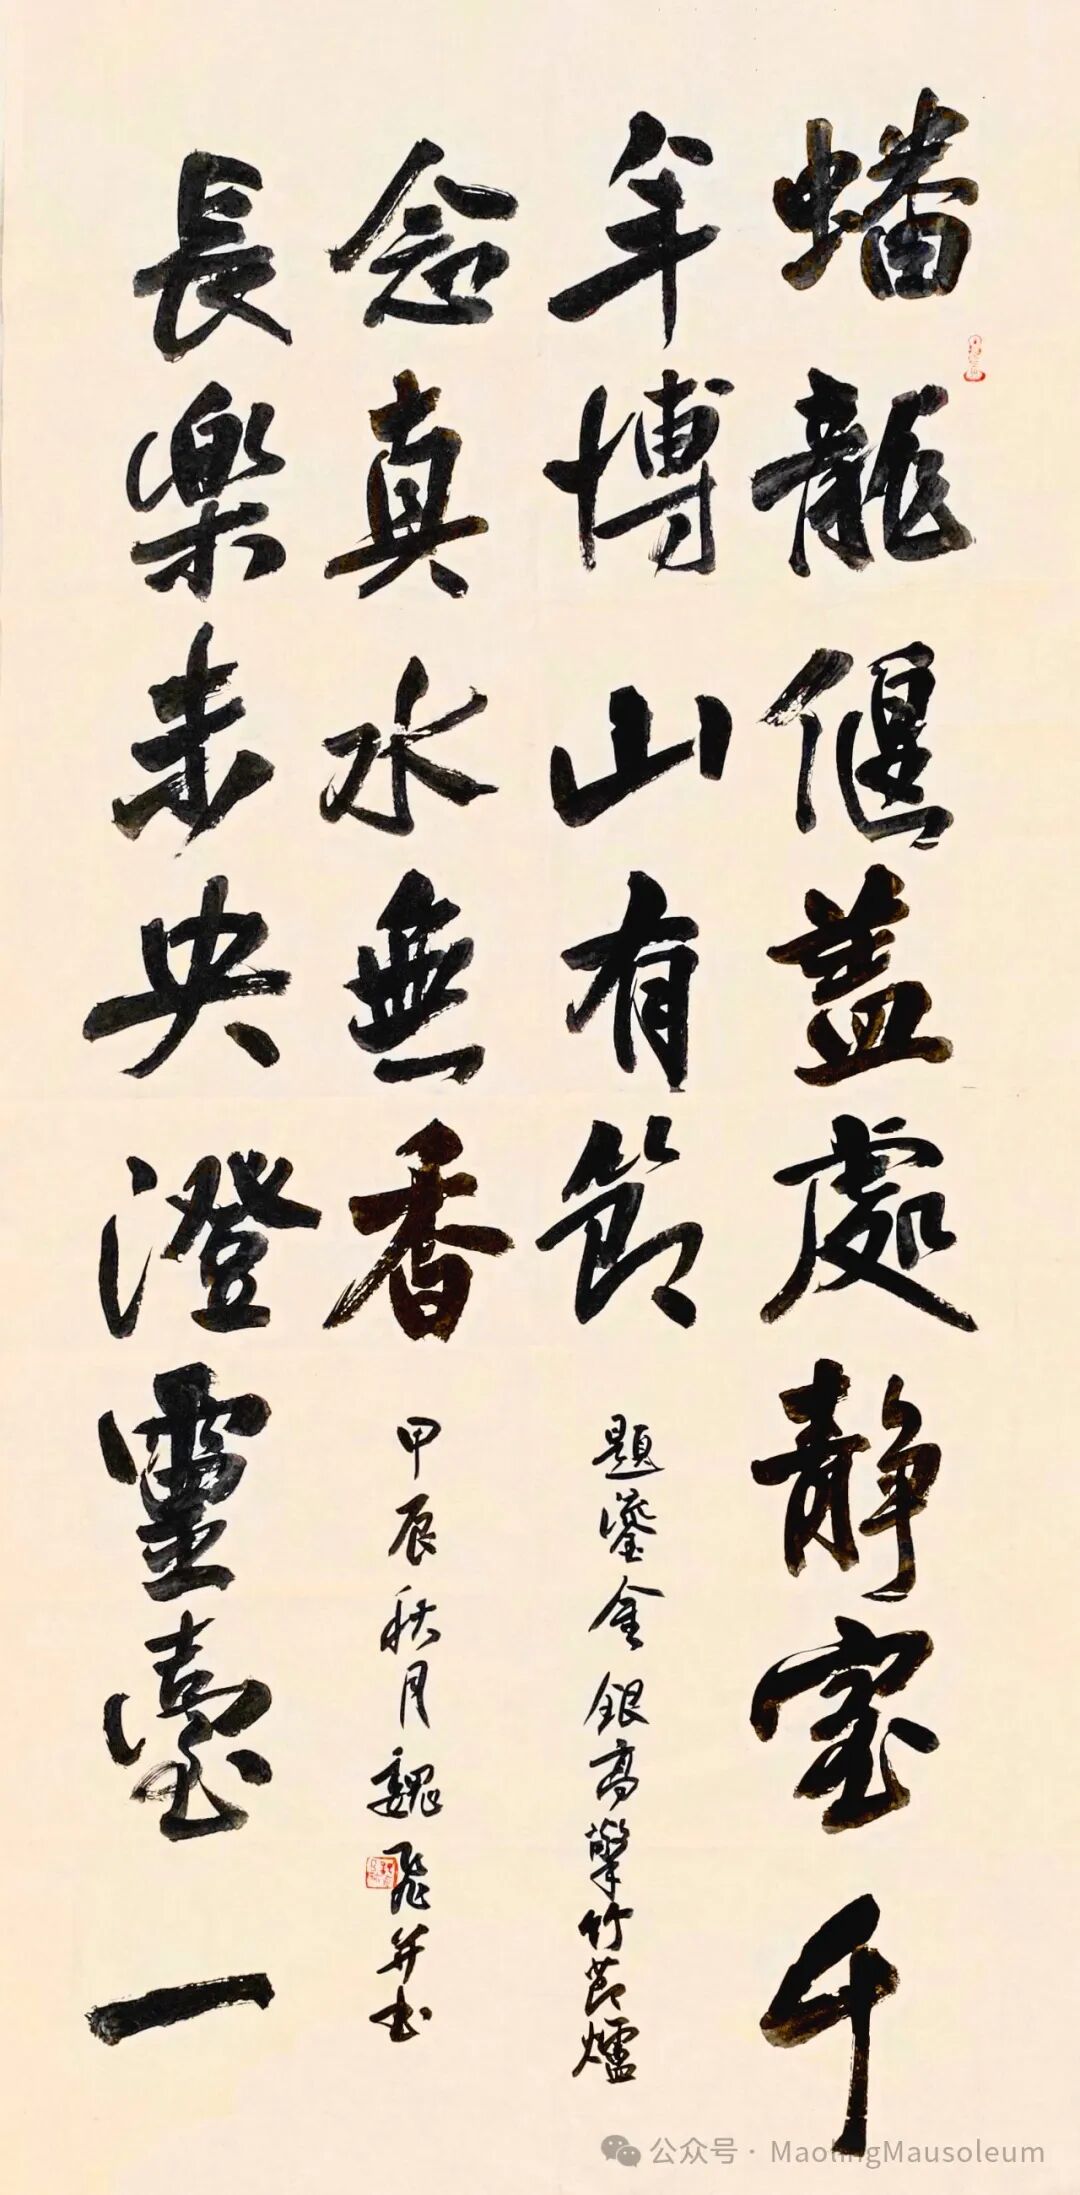 蟠龍偃蓋處静室千
年博山有節
長樂未央澄靈臺一
念真水無香
題鎏金銀高擎竹節爐
甲辰秋月魏飛并书
公众号 · MaolingMausoleum